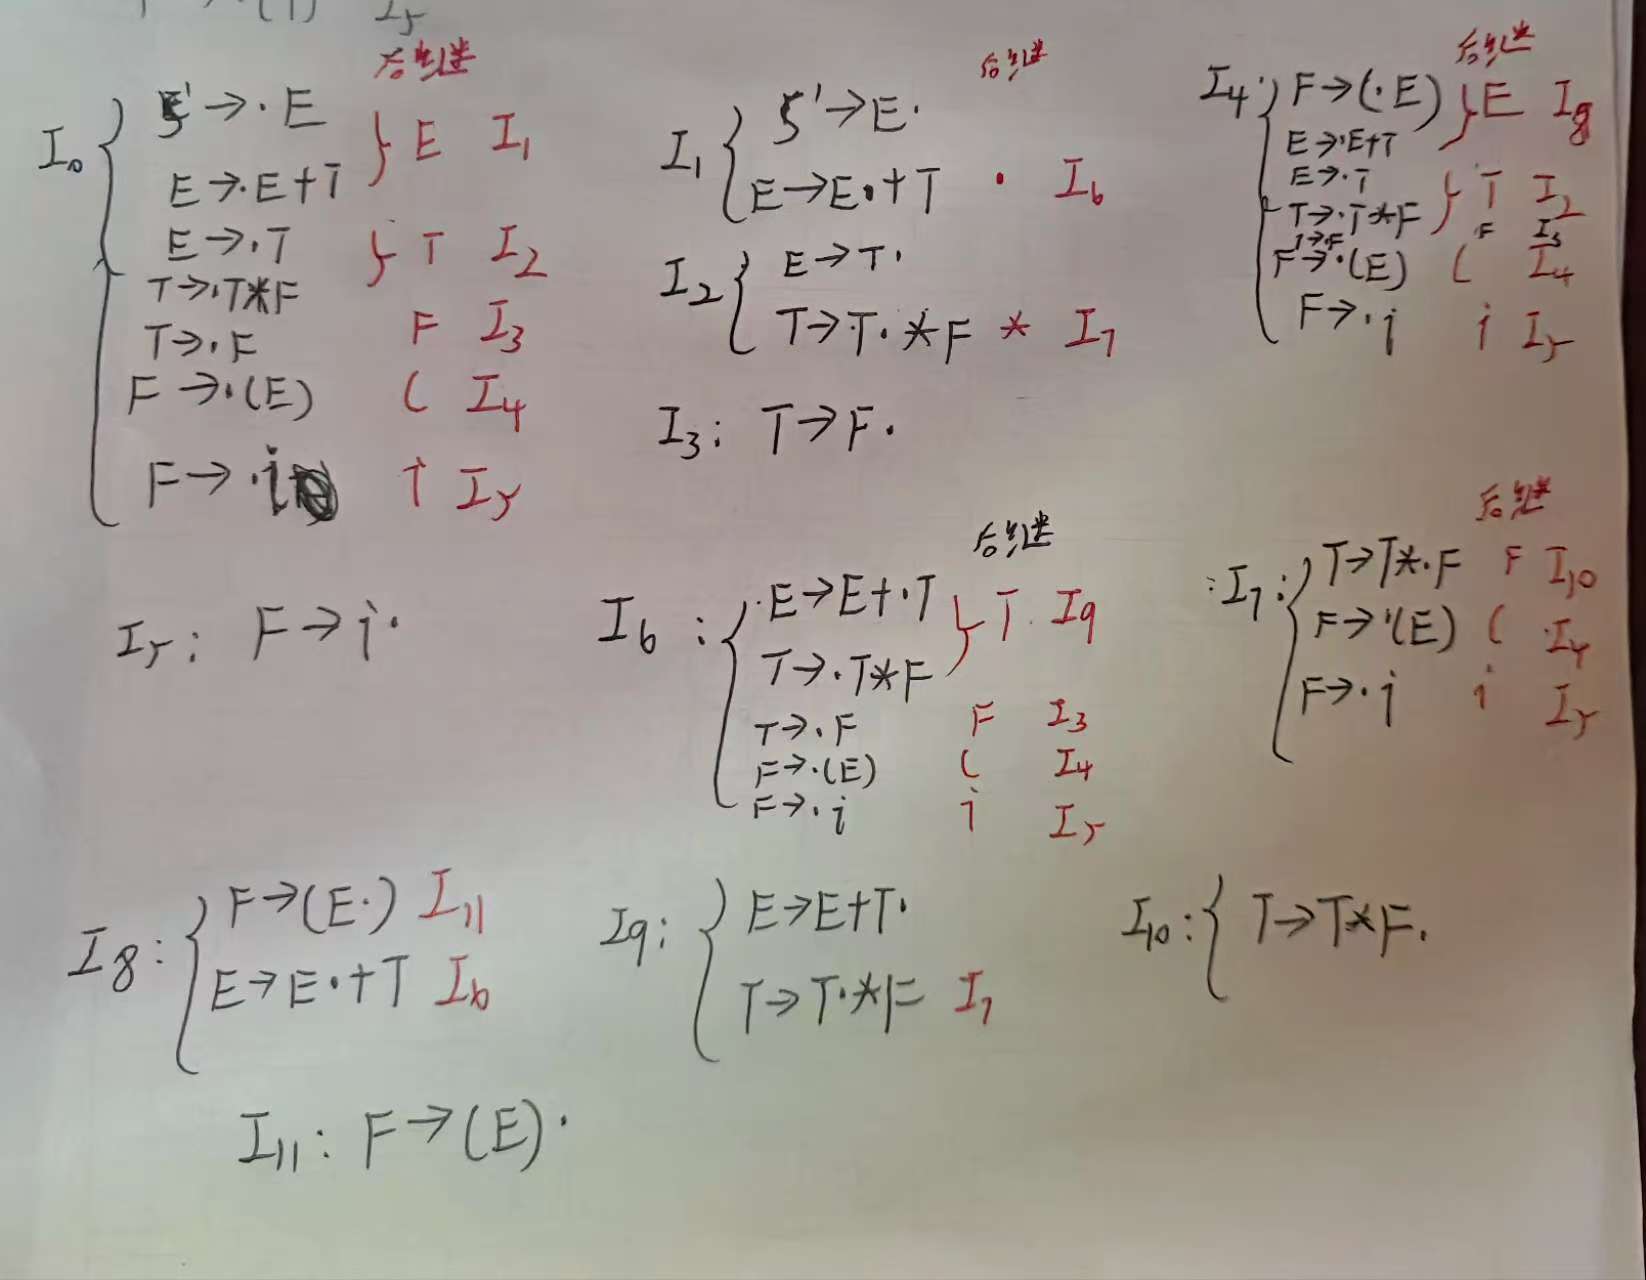 I₅
后继
I₀ S'→·E
E→·E+T } E I₁
E→·T
T→·T*F } T I₂
T→·F F I₃
F→·(E) ( I₄
F→·i i I₅
后继
I₁ S'→E·
E→E·+T · I₆
I₂ E→T·
T→T·*F * I₇
I₃: T→F·
后继
I₄: F→(·E)
E→·E+T } E I₈
E→·T
T→·T*F } T I₂
T→·F F I₃
F→·(E) ( I₄
F→·i i I₅
I₅: F→i·
后继
I₆: E→E+·T
T→·T*F } T I₉
T→·F F I₃
F→·(E) ( I₄
F→·i i I₅
后继
I₇: T→T*·F F I₁₀
F→·(E) ( I₄
F→·i i I₅
I₈: F→(E·) I₁₁
E→E·+T I₆
I₉: E→E+T·
T→T·*F I₇
I₁₀: T→T*F.
I₁₁: F→(E)·